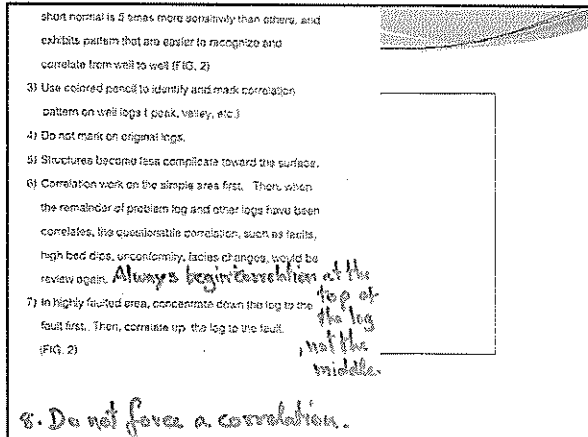 short normal is 5 times more sensitivity than others, and
exhibits pattern that are easier to recognize and
correlate from well to well (FIG. 2)
3) Use colored pencil to identify and mark correlation
pattern on well logs ( peak, valley, etc.)
4) Do not mark on original logs.
5) Structures become less complicate toward the surface.
6) Correlation work on the simple area first. Then, when
the remainder of problem log and other logs have been
correlates, the questionable correlation, such as faults,
high bed dips, unconformity, facies changes, would be
review again. Always begin correlation at the
top of
the log
, not the
middle.
7) In highly faulted area, concentrate down the log to the
fault first. Then, correlate up the log to the fault.
(FIG. 2)
8. Do not force a correlation.